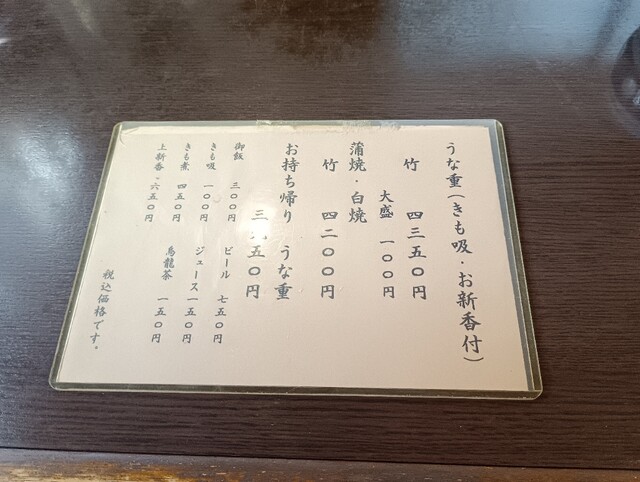 うな重(きも吸・お新香付)
竹 四三五〇円
大盛 一〇〇円
蒲焼・白焼
竹 四二〇〇円
お持ち帰り うな重
五〇円
御飯 三〇〇円
きも吸 一〇〇円
きも煮 四五〇円
上新香 六五〇円
ビール 七五〇円
ジュース 一五〇円
烏龍茶 一五〇円
税込価格です。